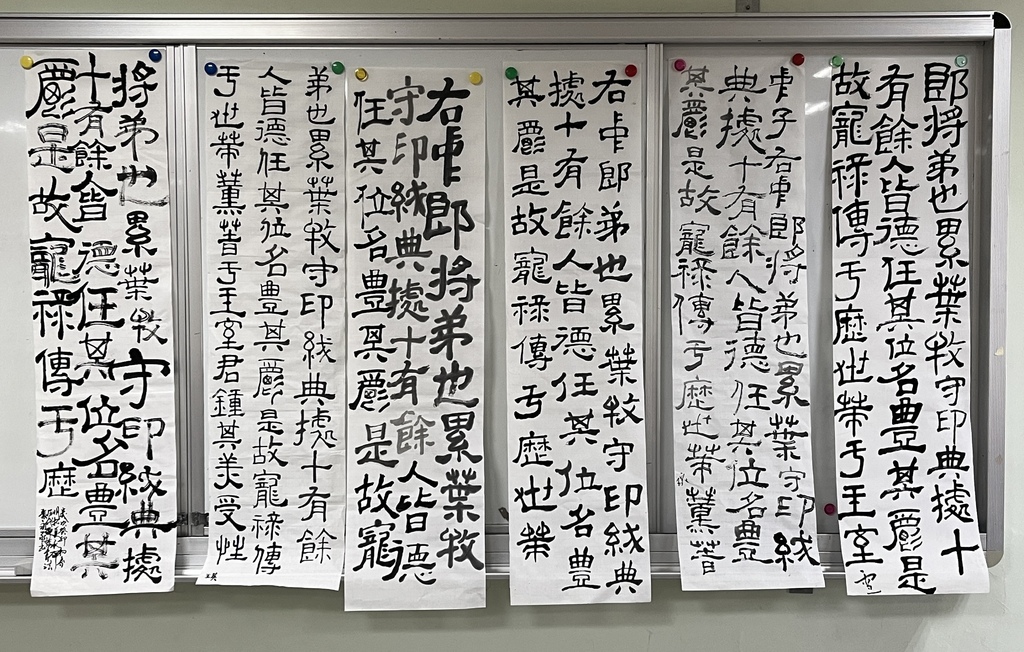 郎將弟也累葉牧守印典據十
有餘人皆德任其位名豐其爵是
故寵祿傳于歷世策于王室
中子右中郎將弟也累葉守印紱
典據十有餘人皆德任其位名豐
其爵是故寵祿傳于歷世策薰著
右中郎弟也累葉牧守印紱典
據十有餘人皆德任其位名豐
其爵是故寵祿傳于歷世策
右中郎將弟也累葉牧
守印紱典據十有餘人皆德
任其位名豐其爵是故寵
弟也累葉牧守印紱典據十有餘
人皆德任其位名豐其爵是故寵祿傳
于世策薰著于王室君鍾其美受性
將弟也累葉牧守印紱典據
十有餘人皆德任其位名豐其
爵是故寵祿傳于歷